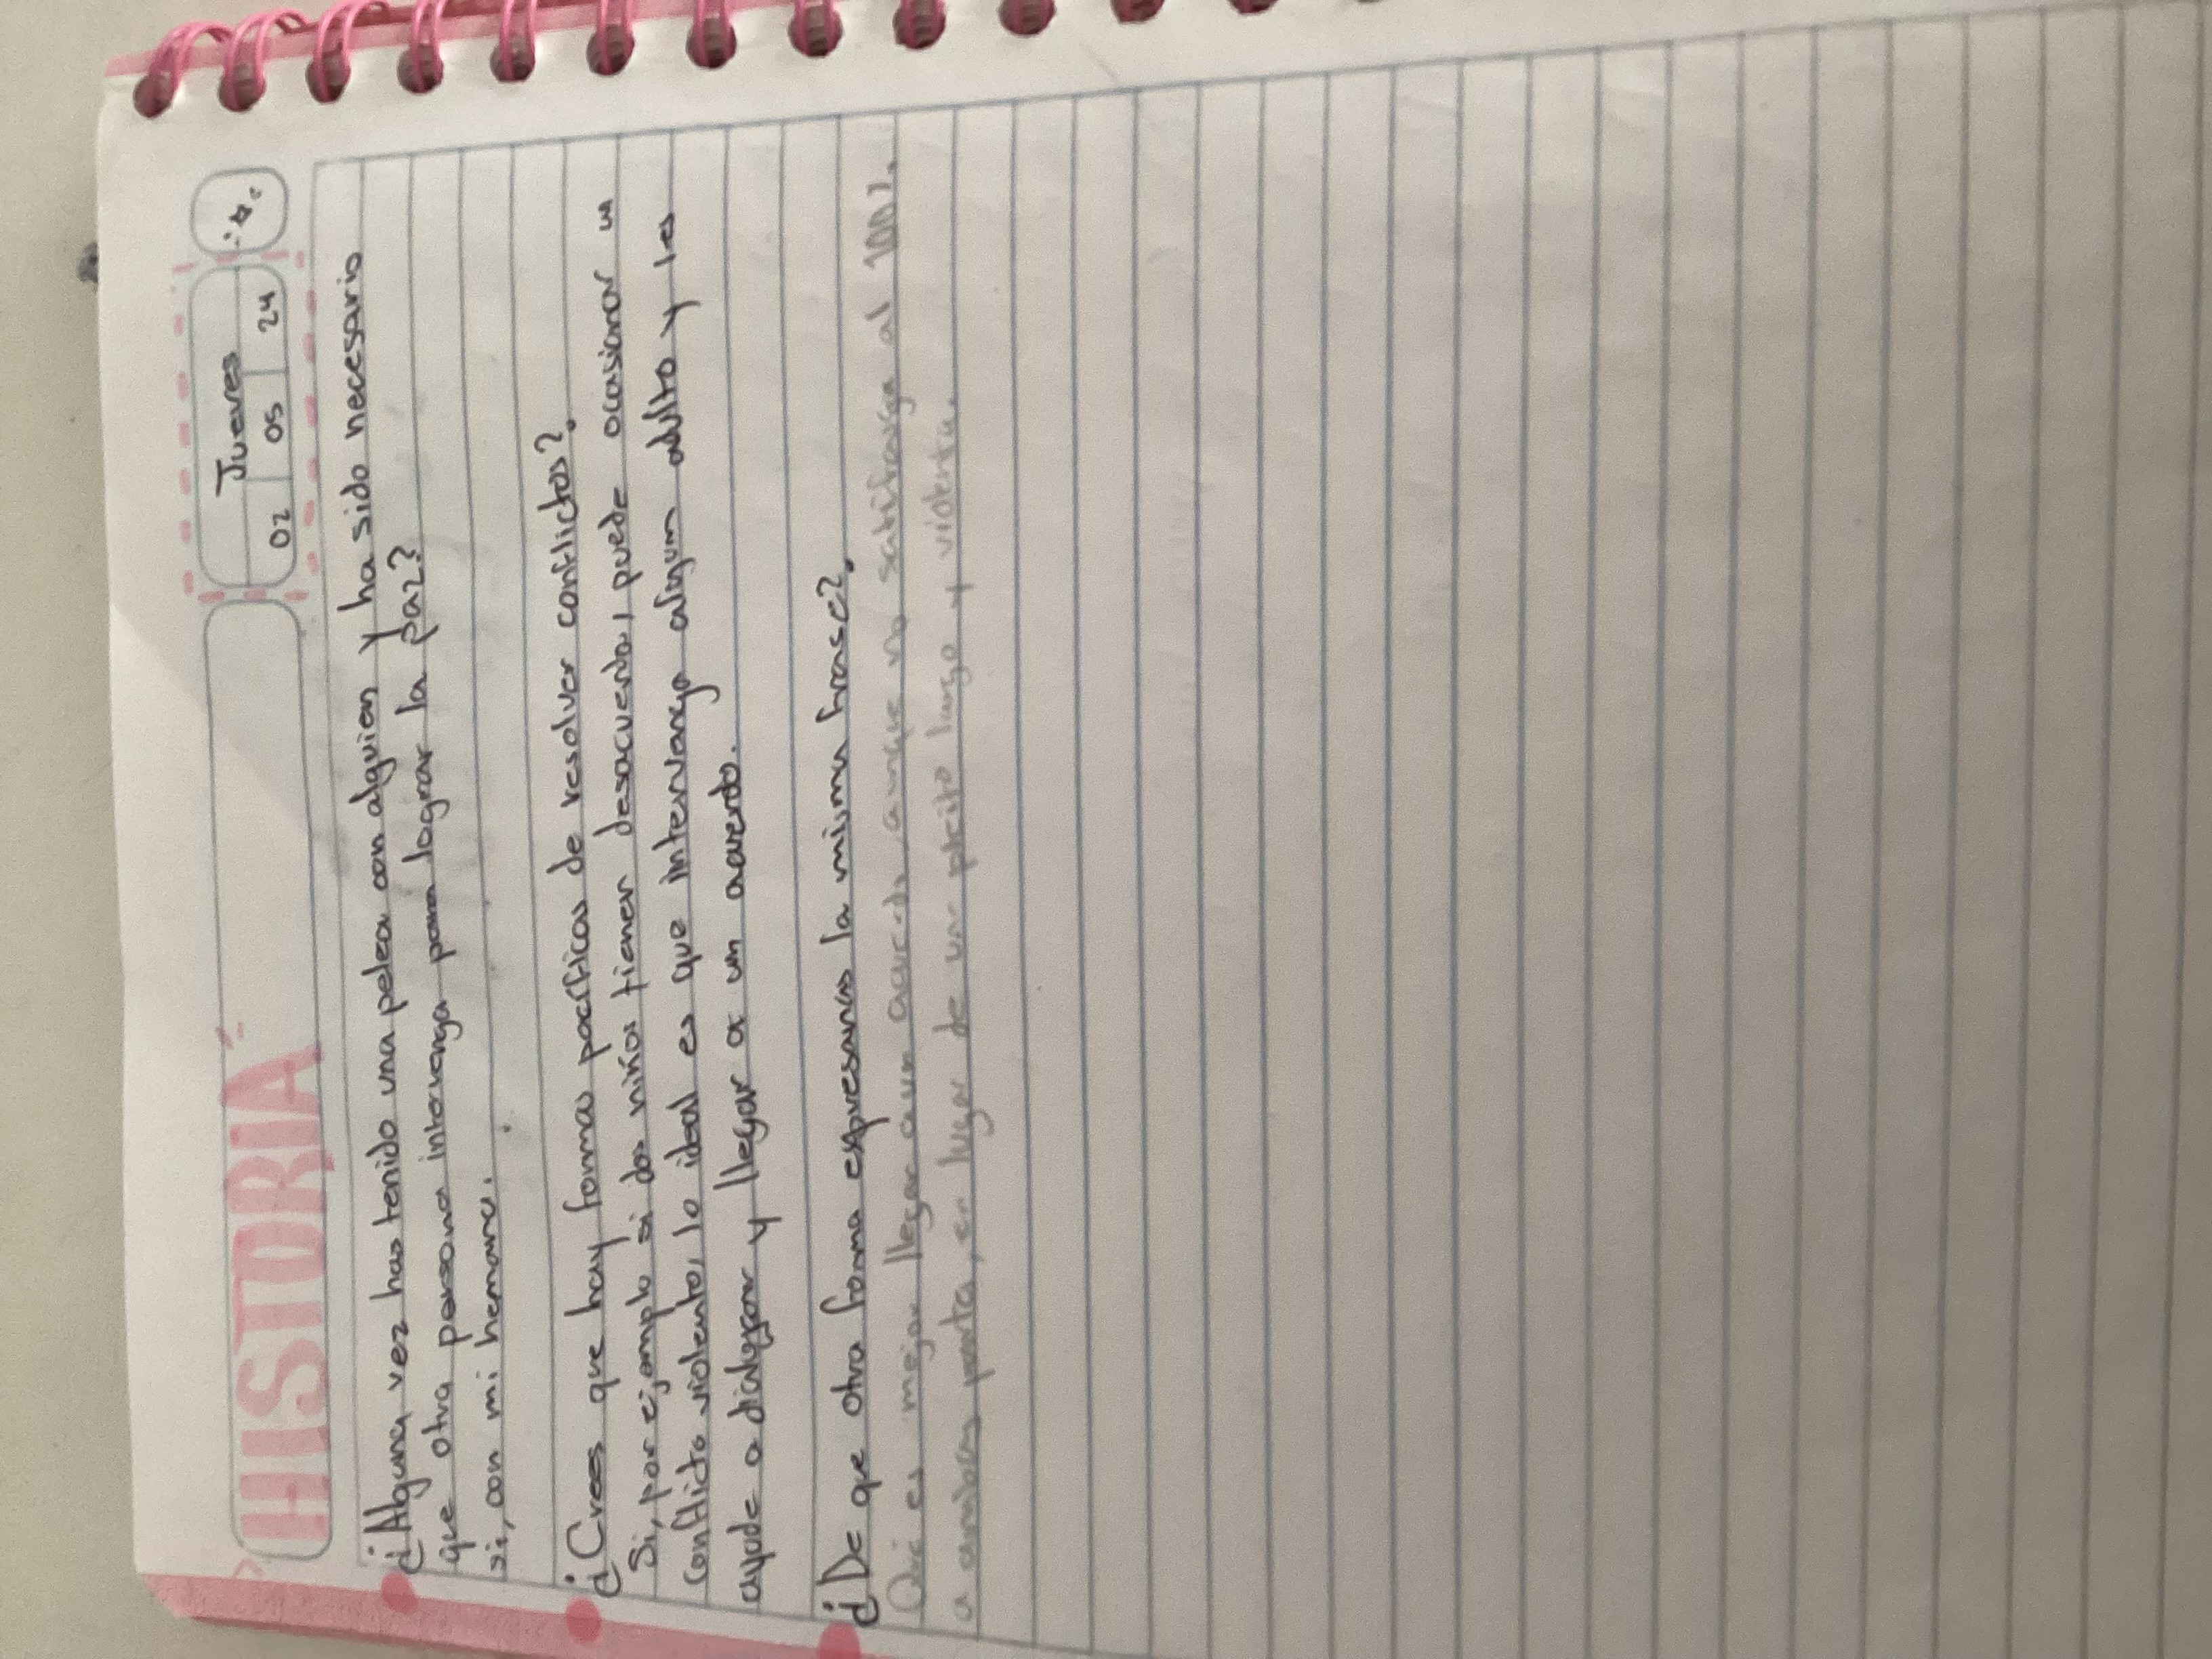 HISTORIA
Jueves
02 05 24
¿Alguna vez has tenido una pelea con alguien y ha sido necesario
que otra persona intervenga para lograr la paz?
si, con mi hermano.
¿Crees que hay formas pacíficas de resolver conflictos?.
Si, por ejemplo si dos niños tienen desacuerdos, puede ocasionar un
conflicto violento, lo ideal es que intervenga algum adulto y les
ayude a dialogar y llegar a un acuerdo.
¿De que otra forma espresarías la misma frase?.
Que es mejor llegar a um acuerdo, aunque no satisfaga al 100%.
a ambas partes, en lugar de un pleito largo y violento.